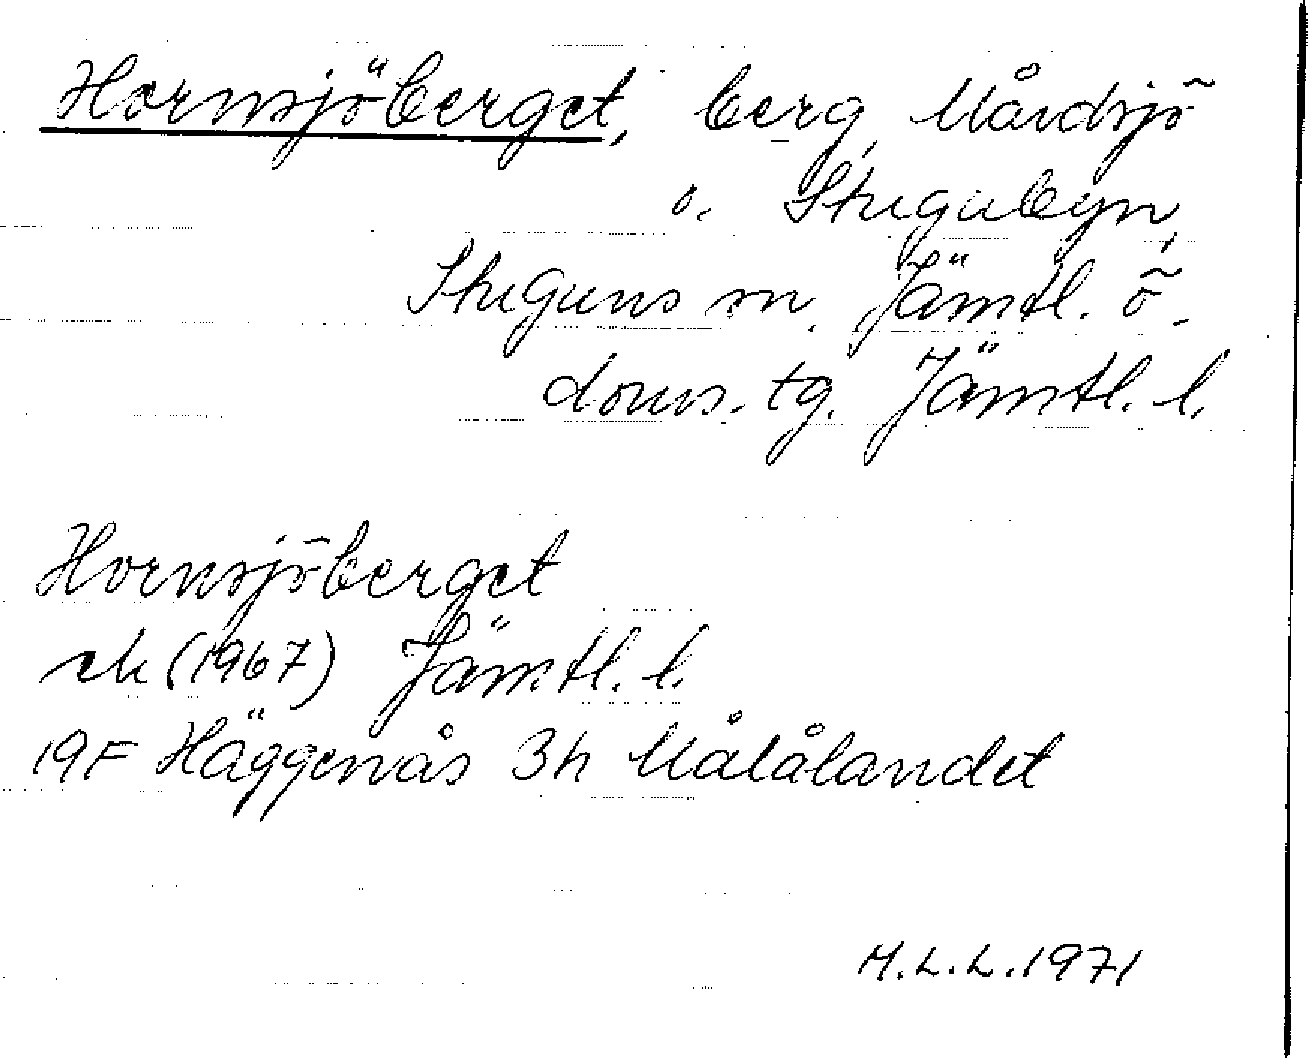 Hornsjöberget, berg, Mårdsjö
o. Stugubyn,
Stuguns sn, Jämtl. ö.
doms. tg. Jämtl. l.
Hornsjöberget
ek (1967) Jämtl. l.
19F Häggenås 3h Målålandet
M.L.L. 1971